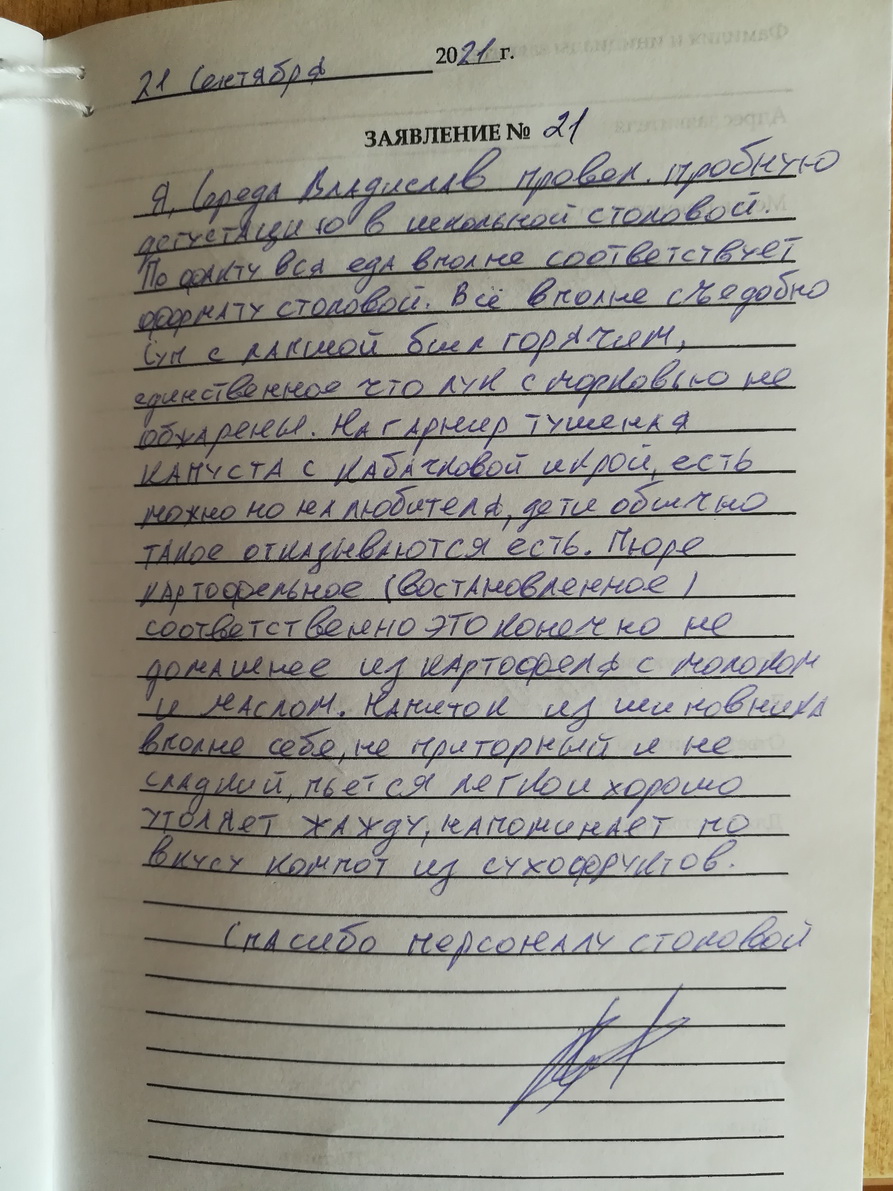 21 Сентября 2021 г.
ЗАЯВЛЕНИЕ № 21
Я, Среда Владислав провел. пробную
дегустацию в школьной столовой.
По факту вся еда вполне соответствует
формату столовой. Всё вполне съедобно
Суп с лапшой был горячем,
единственное что лук с морковью не
обжарены. На гарнир тушеная
капуста с кабачковой икрой, есть
можно но на любителя, дети обычно
такое отказываются есть. Пюре
картофельное (востановленное)
соответственно это конечно не
домашнее из картофеля с молоком
и маслом. Напиток из шиповника
вполне себе, не приторный и не
сладкий, пьется легко и хорошо
утоляет жажду, напоминает по
вкусу компот из сухофруктов.
Спасибо персоналу столовой